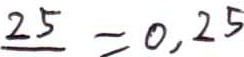 25 = 0,25